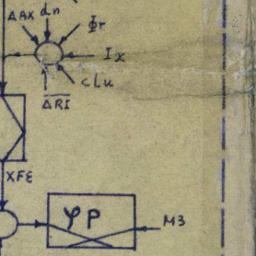 ΔAX dn Φr
Ix
cLu
ΔRI
XFE
φP
M3